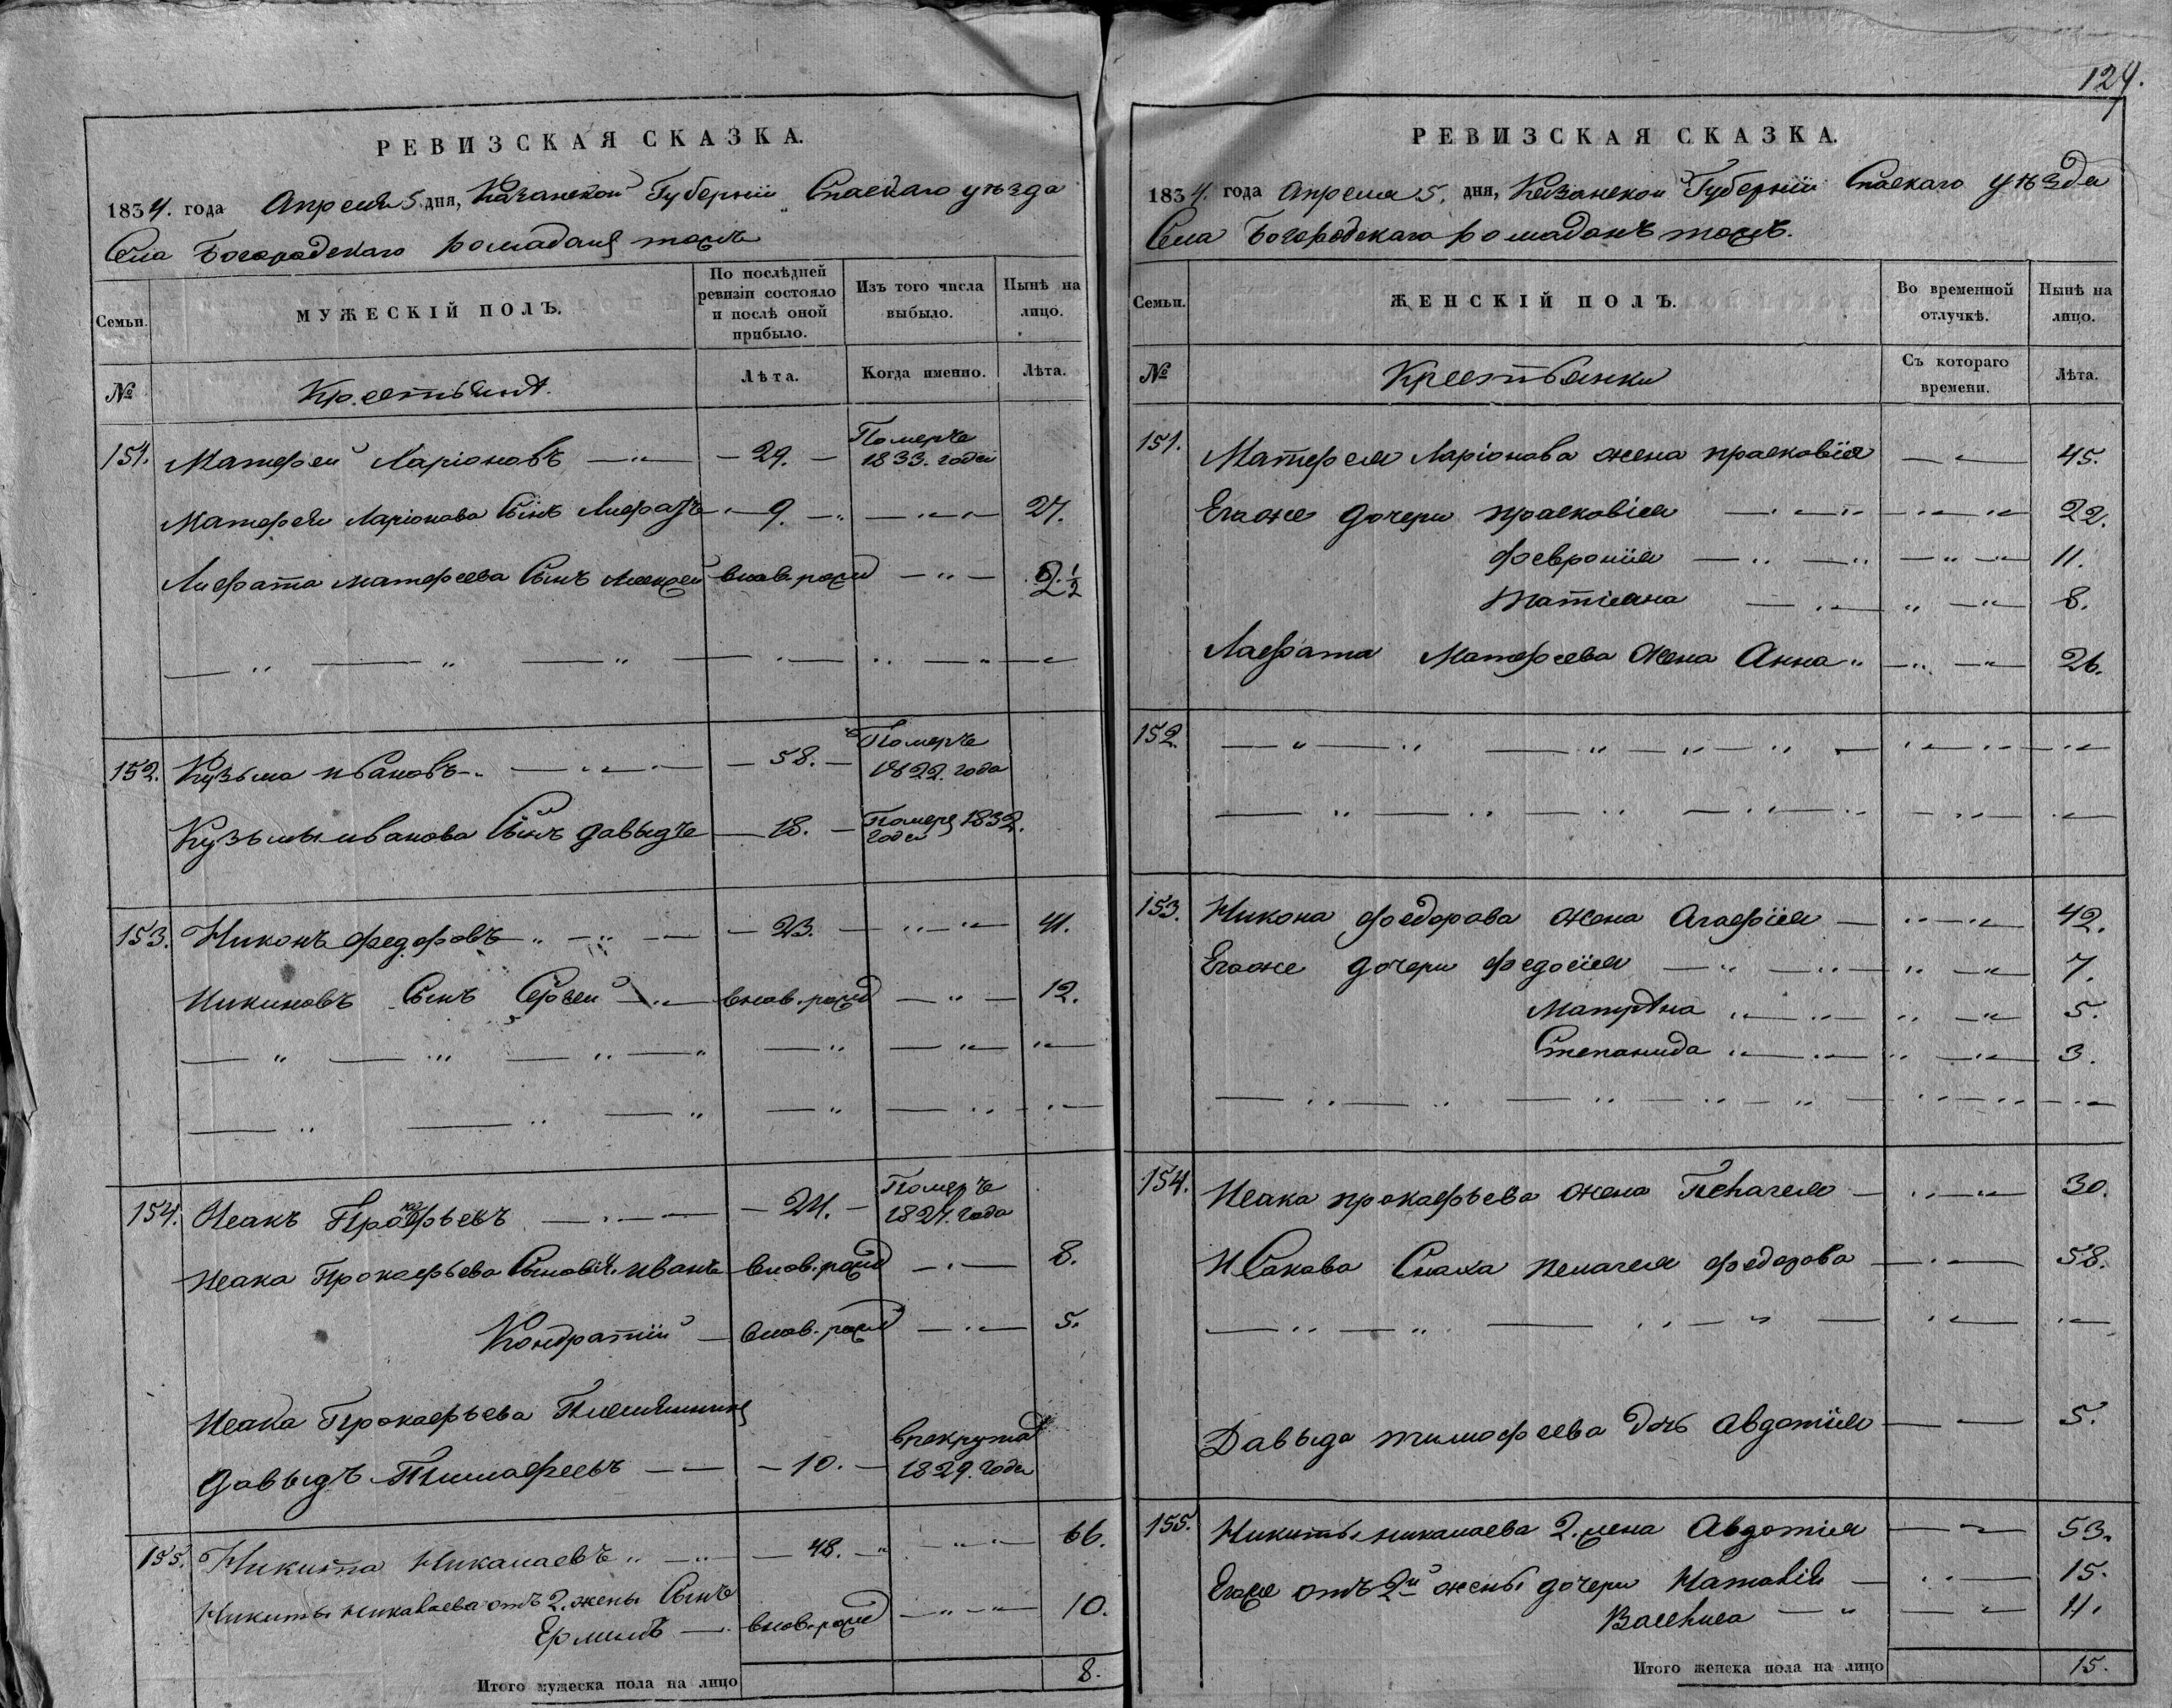 124.
РЕВИЗСКАЯ СКАЗКА.
1834. года Апреля 5. дня, Казанской Губернiи Спаскаго уезда
Села Богородскаго Ромадань тожъ
Семьи.
МУЖЕСКІЙ ПОЛЪ.
По послѣдней ревизіи состояло и послѣ оной прибыло.
Изъ того числа выбыло.
Нынѣ на лицо.
№
Крестьяне.
Лѣта.
Когда именно.
Лѣта.
151. Матфей Ларiоновъ — 29. — Померъ 1833. года
Матфея Ларiонова Сынъ Лифатъ 9. 27.
Лифата Матфеева Сынъ Алексей внов. рожд 2. 1/2
152. Кузьма ивановъ — 58. — Померъ 1822. года
Кузьмы иванова Сынъ давыдъ — 18. — Померъ 1832. года
153. Никонъ федоровъ — 23. — 41.
Никоновъ Сынъ Сергей внов. рожд 12.
154. Исакъ Прокофьевъ — 24. — Померъ 1827. года
Исака Прокофьева Сыновья иванъ внов. рожд 8.
Кондратiй — внов. рожд 5.
Исака Прокофьева Племянникъ
Давыдъ Тимофеевъ — 10. — в рекрута 1829. года
155. Никита Никалаевъ — 48. — 66.
Никиты никалаева отъ 2. жены Сынъ
Ермилъ — внов. рожд 10.
Итого мужеска пола на лицо 8.
РЕВИЗСКАЯ СКАЗКА.
1834. года Апреля 5. дня, Казанской Губернiи Спаскаго уезда
Села Богородскаго Ромаданъ тожъ.
Семьи.
ЖЕНСКІЙ ПОЛЪ.
Во временной отлучкѣ.
Нынѣ на лицо.
№
Крестьянки
Съ котораго времени.
Лѣта.
151. Матфея Ларiонова жена прасковiя 45.
Егоже дочери прасковiя 22.
феврония 11.
татiяна 8.
Лифата Матфеева жена Анна 26.
152.
153. Никона федорова жена Агафiя 42.
Егоже дочери федосiя 7.
Матрёна 5.
Степанида 3.
154. Исака прокафьева жена Пелагея 30.
Исакова Сноха пелагея федорова 58.
Давыда тимофеева дочь Авдотiя 5.
155. Никиты никалаева 2. жена Авдотiя 53.
Егоже отъ 2й жены дочери Наталiя 15.
Васелиса 11.
Итого женска пола на лицо 15.